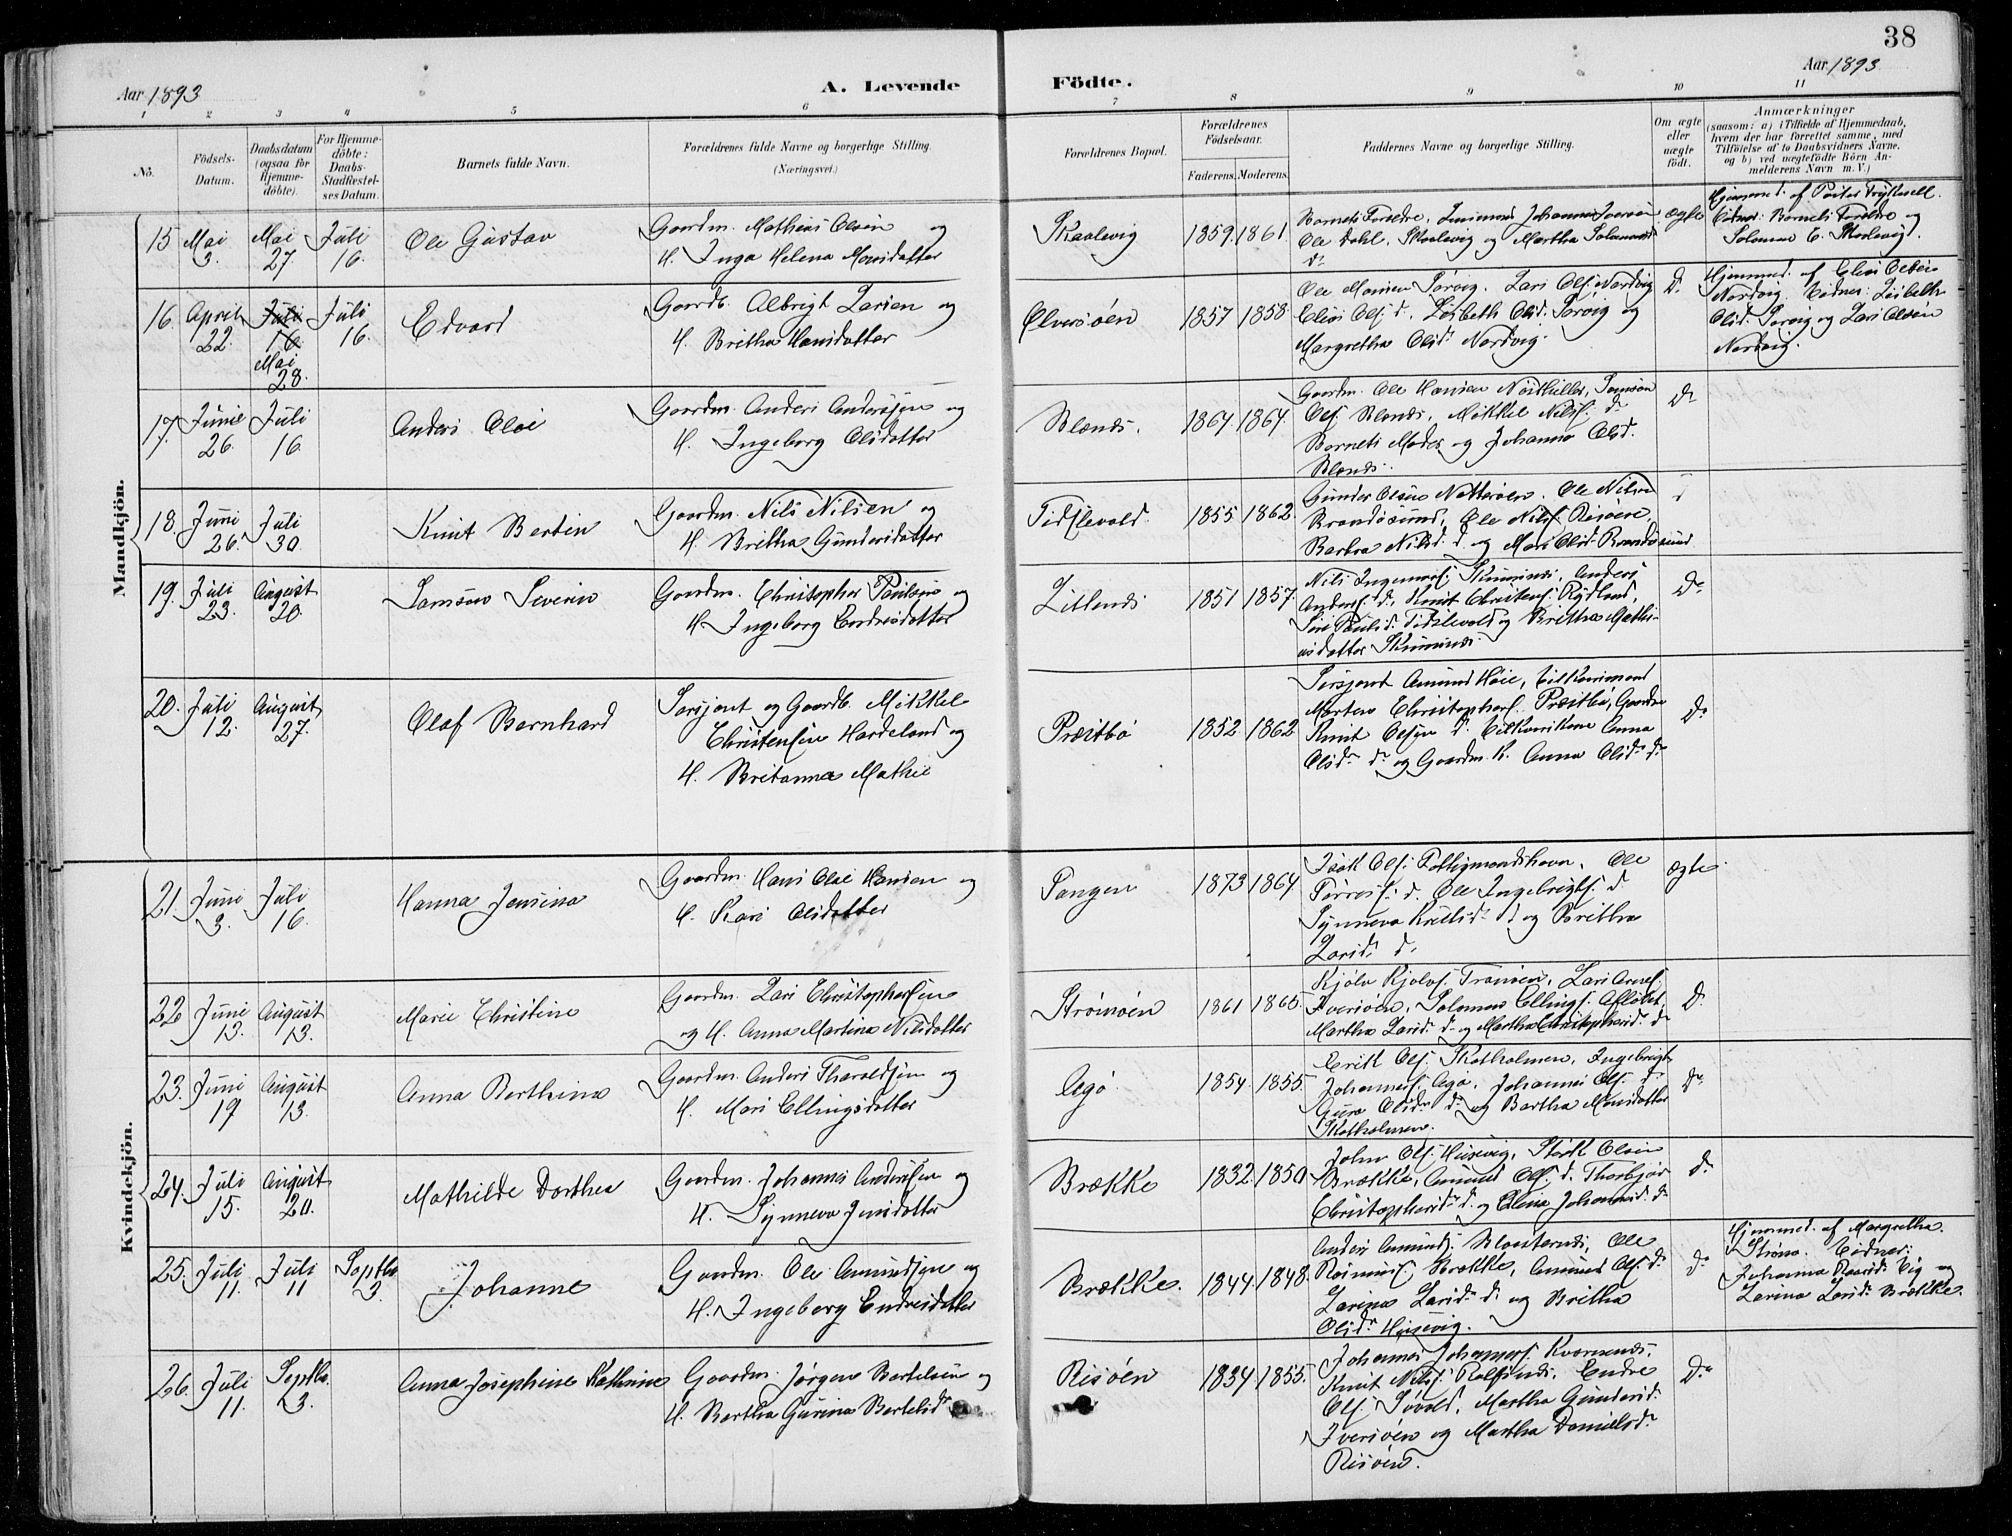 38
Aar 1893
A. Levende
Födte.
Aar 1893
1 2 3 4 5 6 7 8 9 10 11
No.
Födsels-
Datum.
Daabsdatum
(ogsaa for
Hjemme-
döbte).
For Hjemme-
döbte:
Daabs-
Stadfæstel-
ses Datum.
Barnets fulde Navn.
Forældrenes fulde Navne og borgerlige Stilling.
(Næringsvei.)
Forældrenes Bopæl.
Forældrenes
Födselsaar.
Faderens. Moderens.
Faddernes Navne og borgerlige Stilling.
Om ægte
eller
uægte
födt.
Anmærkninger
(saasom: a) i Tilfælde af Hjemmedaab,
hvem der har forrettet samme, med
Tilföielse af to Daabsvidners Navne,
og b) ved uægtefödte Börn An-
melderens Navn m. V.)
Mandkjön.
15 Mai 3. Mai 27. Juli 16. Ole Gustav
Gaardm. Mathias Olsen og
H. Inga Helena Monsdatter
Skaalevig 1859. 1861.
Barnets Forældre, Johannes Iversen
Ole Dahl, Skaalevig og Martha Salamonsd
ægte
Hjemmed. af
Vidner: Barnets Forældre og
Salomon E. Skaalevig.
16. April 22. Juli 16. Mai 28. Juli 16. Edvard
Gaardb. Albrigt Larsen og
H. Britha Hansdatter
1857 1858
Ole Monsen Sørvig. Lars Olsf. Nordvig
Elias Olsf. d. Lisbeth Olsd. Sørvig og
Margretha Olsd. Nordvig.
D.
Hjemmed. af Elias Olsen
Nordvig. Vidner: Lisbeth
Olsd. Sørvig og Lars Olsen
Nordvig.
17. Junie 26. Juli 16. Anders Olai
Gaardm. Anders Andersen og
H. Ingeborg Olsdatter
1864. 1864.
Gaardm. Ole Hansen Samson
Olsf. Mikkel Nilsf. d.
Barnets Moder og Johanna Olsd.
D.
18. Juni 26. Juli 30. Knut Bertin
Gaardm. Nils Nilsen og
H. Britha Gundersdatter
Tidslevold. 1855 1862.
Gunder Olsen Ole Nilsen
Brandøsund, Ole Nilsf. Risøen,
Barbra Nilsd. d. og Mari Olsd. Brandøsund
19. Juli 23. August 20. Samson Severin
Gaardm. Christopher Paulsen og
H. Ingeborg Endresdatter
1851 1857.
Nils Anders
Andersf. d. Knut Christensf. Rydland,
Siri Paulsd. Tidslevold og Britha Mathi-
asdatter
D.
20. Juli 12. August 27. Olaf Bernhard
Sersjant og Gaardb. Mikkel
Christensen Hardeland og
H. Britanna Mathie
Præstbø 1852 1862
Sersjant Amund Høie,
Morten Christophersf. Præstbø, Gaardm
Knut Olsen d. Anna
Olsd. d. og Gaardm. K. Anna Olsd. d.
D.
Kvindekjön.
21. Juni 3. Juli 16. Hanna Jensina
Gaardm. Hans Olai Hansen og
H. Kari Olsdatter
Tangen 1873 1864.
Isak Olsf. Ole
Tørresf. d. Ole Ingebrigtsf. d.
Synneva d. og Britha
Larsd. d.
ægte
22 Juni 13. August 13. Marie Christine
Gaardm. Lars Christophersen
og H. Anna Martina Nilsdatter
Strømøen 1861 1865.
Kjølv Kjølvsf. Lars
Iversøen, Salomon Ellingsf.
Martha Larsd. d. og Martha Christophersd. d.
D.
23. Juni 17 August 13. Anna Berthina
Gaardm. Anders Tharaldsen og
H. Mari Ellingsdatter
Agø. 1854. 1855
Erik Olsf. Skotholmen, Ingebrigt
Johannesf. Agø. Johannes Olsf. d.
Guro Olsd. d. og Bartha Monsdatter
Skotholmen.
D.
24. Juli 15. August 20. Mathilde Dorthea
Gaardm. Johannes Andersen og
H. Synneva Jensdatter
Brække 1832. 1850
John Olsf. Husevig, Størk Olsen
Brække, Amund Olsf. d. Thorbjør
Christophersd. d. og Elina Johannesd. d.
d.
25. Juli 11. Juli 11 Septbr. 3. Johanne
Gaardm. Ole Amundsen og
H. Ingeborg Endresdatter
Brække. 1844. 1848.
Anders Amundsf. Ole
Brække, Amund Olsf. d.
Larina Larsd. d. og Britha
Olsd. Husevig.
D.
Hjemmed. af Margretha
Strøno. Vidner:
Johanna og
Larina Larsd. Brække.
26. Juli 11. Septbr. 3. Anna Josephine Kathrine
Gaardm. Jørgen Bertelsen og
H. Bertha Gurina Bertelsd
Risøen 1834 1855.
Johannes Johannesf.
Knut Nilsf. Endre
Olsf. Martha Gundersd.
Iversøen og Martha Danielsd.
Risøen.
D.